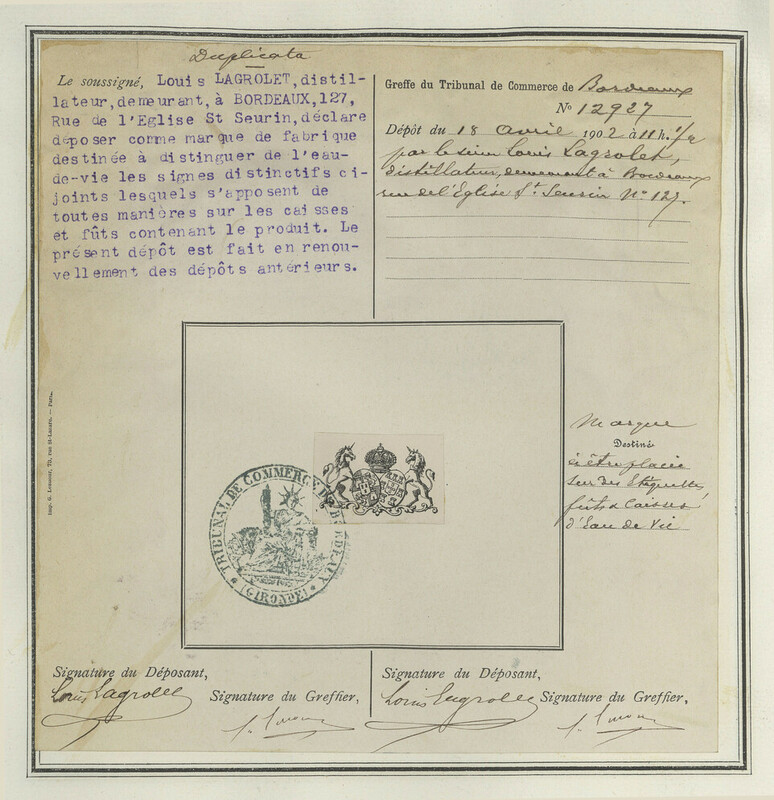 Duplicata
Le soussigné, Louis LAGROLET, distil-
lateur, demeurant, à BORDEAUX, 127,
Rue de l'Eglise St Seurin, déclare
déposer comme marque de fabrique
destinée à distinguer de l'eau-
de-vie les signes distinctifs ci-
joints lesquels s'apposent de
toutes manières sur les caisses
et fûts contenant le produit. Le
présent dépôt est fait en renou-
vellement des dépôts antérieurs.
Greffe du Tribunal de Commerce de Bordeaux
No 12927
Dépôt du 18 avril 1902 à 11 h. 1/2
par le sieur Louis Lagrolet,
distillateur, demeurant à Bordeaux
rue de l'Eglise St. Seurin No 127.
Imp. G. Lemonier, rue St-Lazare. — Paris.
TRIBUNAL DE COMMERCE DE BORDEAUX
(GIRONDE)
Marque
Destinée
à être placée
sur des Etiquettes,
fûts & Caisses
d'Eau de Vie
Signature du Déposant,
Louis Lagrolet
Signature du Greffier,
Signature du Déposant,
Louis Lagrolet
Signature du Greffier,